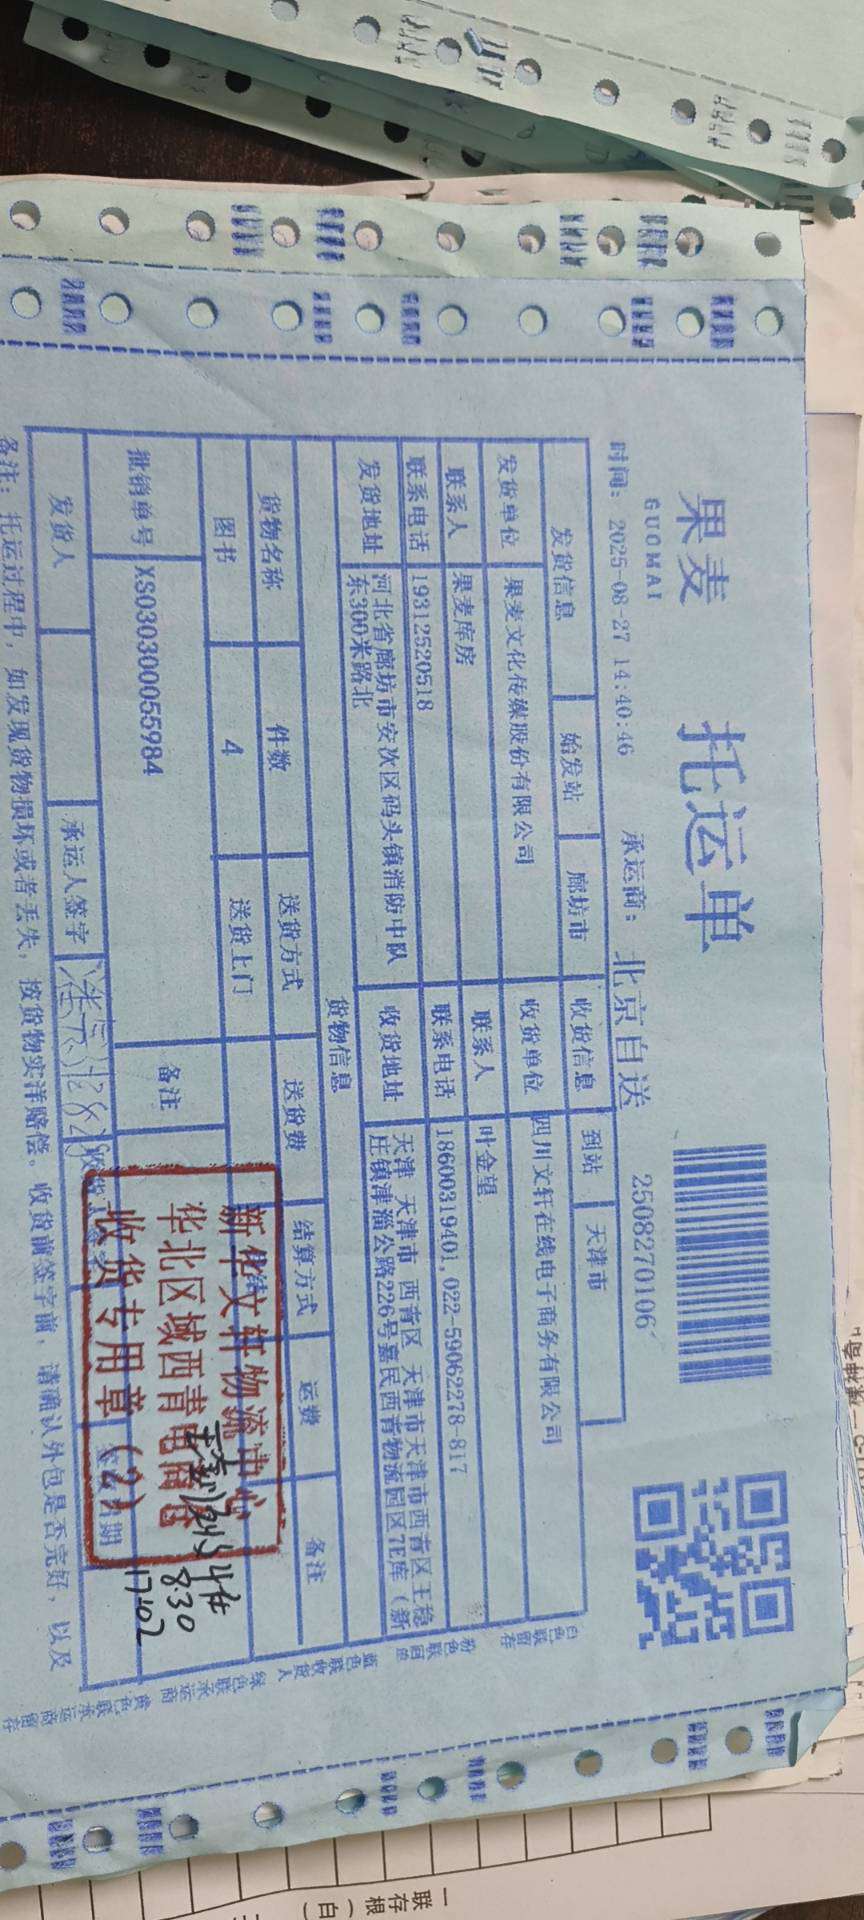 果麦
GUOMAI
托运单
时间: 2025-08-27 14:40:46
承运商: 北京自送
2508270106
发货信息 始发站 廊坊市 收货信息 到站 天津市
发货单位 果麦文化传媒股份有限公司 收货单位 四川文轩在线电子商务有限公司
联系人 果麦库房 联系人 叶金望
联系电话 19312520518 联系电话 18600319401,022-59062278-817
发货地址 河北省廊坊市安次区码头镇消防中队
东300米路北
收货地址 天津 天津市 西青区 天津市天津市西青区王稳
庄镇津淄公路226号嘉民西青物流园区7E库（新
货物信息
货物名称 件数 送货方式 送货费 结算方式 运费 备注
图书 4 送货上门
批销单号 XS030300055984 备注
发货人 承运人签字
新华文轩物流中心
华北区域西青电商仓
收货专用章(2)
8.30
17:02
备注: 托运过程中，如发现货物损坏或者丢失，按货物实洋赔偿。收货前签字前，请确认外包是否完好，以及
白色联留存
粉色联回单
蓝色联收货人
绿色联承运商
黄色联承运商留存
一联
存根
（白